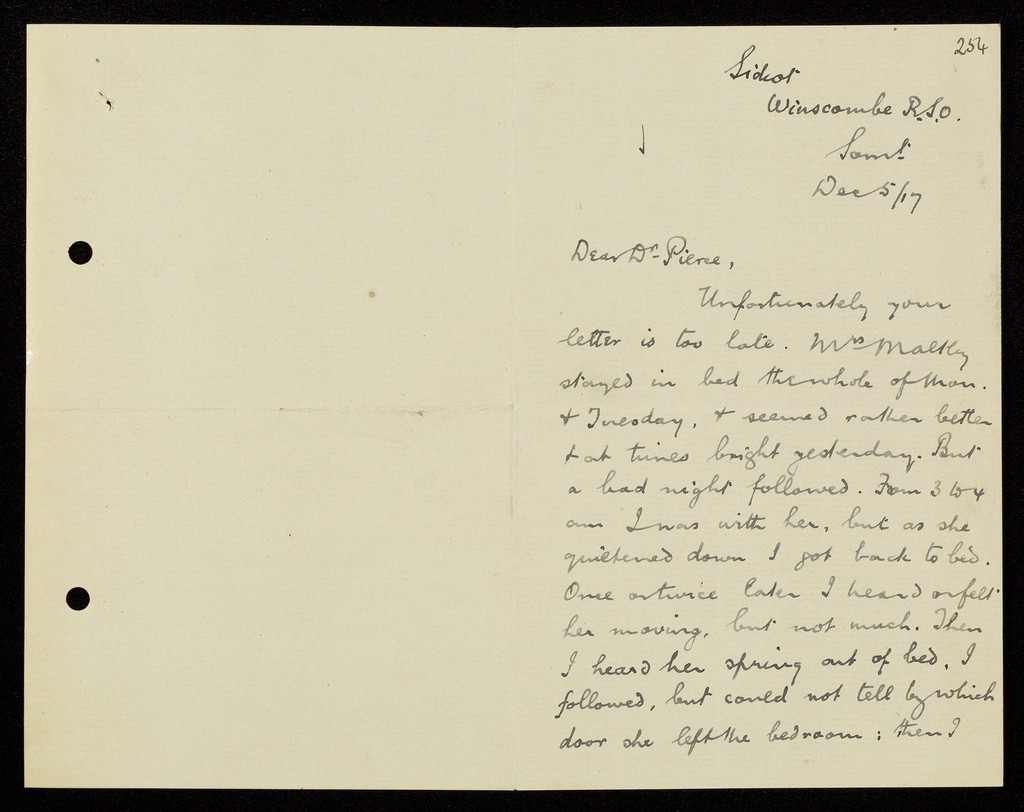 254
Sidcot
Winscombe R.S.O.
Somt.
Dec 5/17
Dear Dr. Pierce,
Unfortunately your
letter is too late. Mrs Maltby
stayed in bed the whole of Mon.
& Tuesday, & seemed rather better
& at times bright yesterday. But
a bad night followed. From 3 to 4
am I was with her, but as she
quietened down I got back to bed.
Once or twice later I heard or felt
her moving, but not much. Then
I heard her spring out of bed, I
followed, but could not tell by which
door she left the bedroom; then I